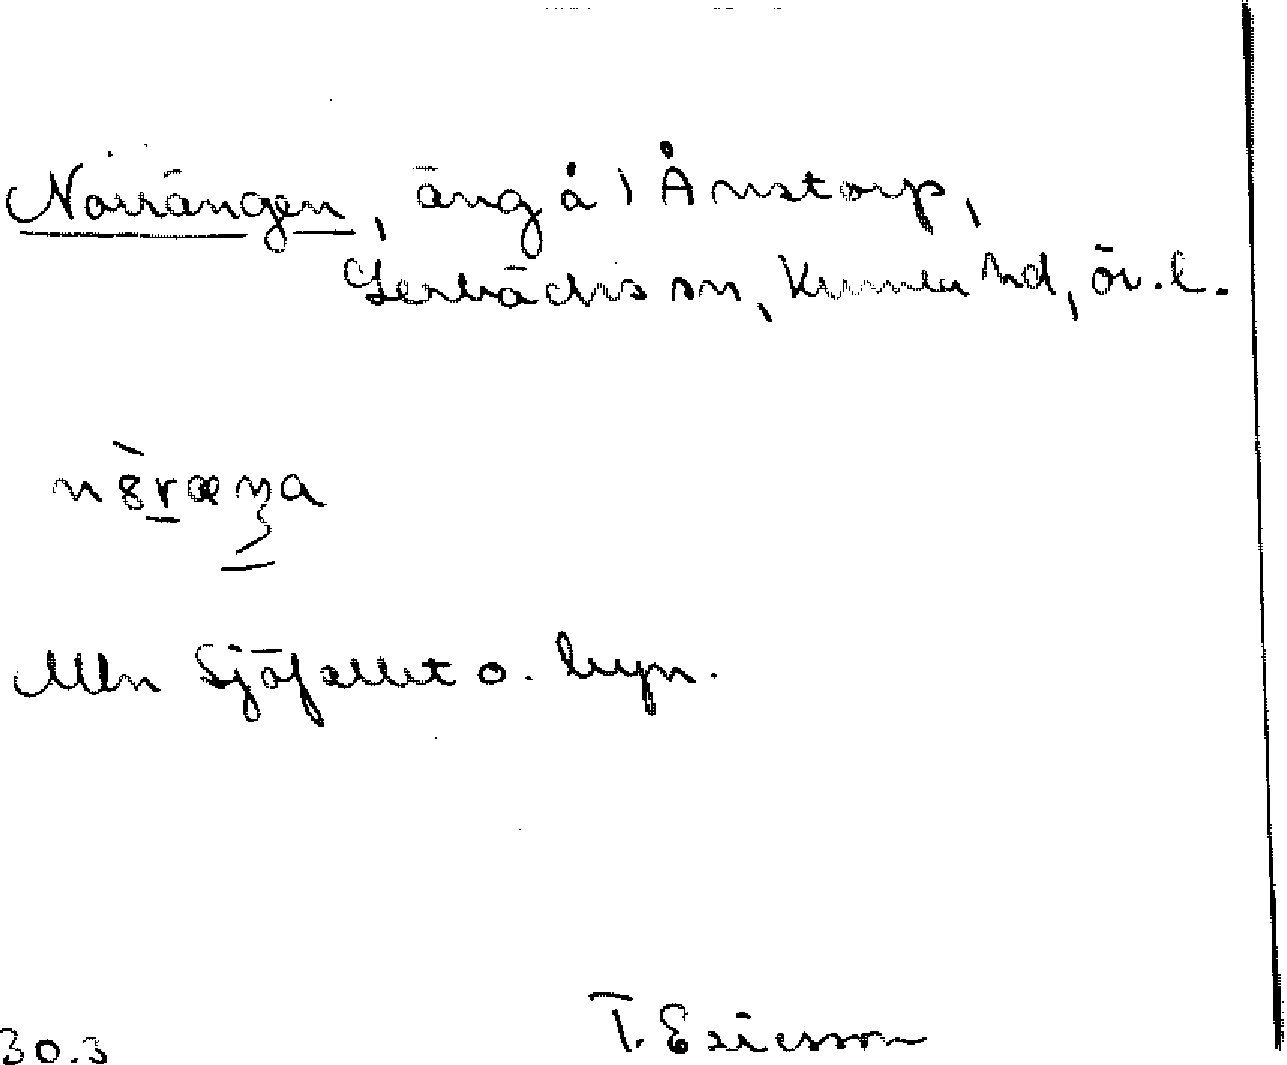 Norrängen, äng å 1 Ånstorp,
Lerbäcks sn, Kumla hd, ör. l.
Mln Sjöfallet o. byn.
30.3 T. Ericsson